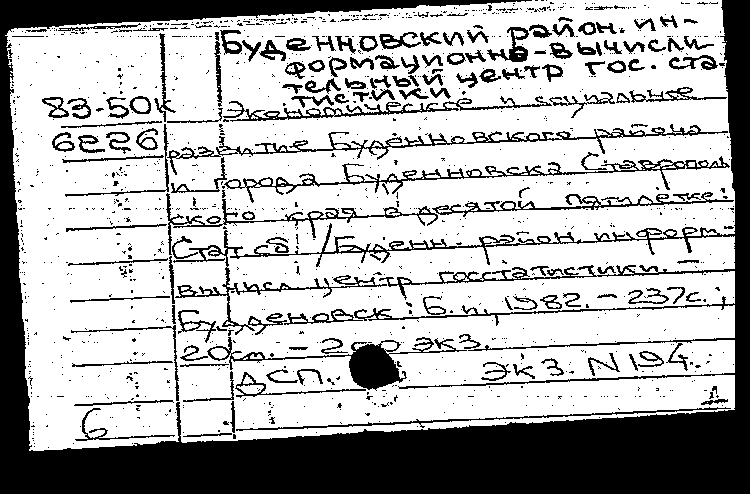 Буденновский район. ин-
формационно-вычисли
тельный центр гос. ста-
тистики
83-50к
6226
Экономическое и социальное
развитие Буденновского района
и города Буденновска Ставрополь
ского края в десятой пятилетке:
Стат. сб. / Буденн. район. информ.-
вычисл. центр госстатистики. –
Буденновск : Б. и., 1982. – 237с. ;
20см. – 200 экз.
ДСП. Экз. N 194.
б